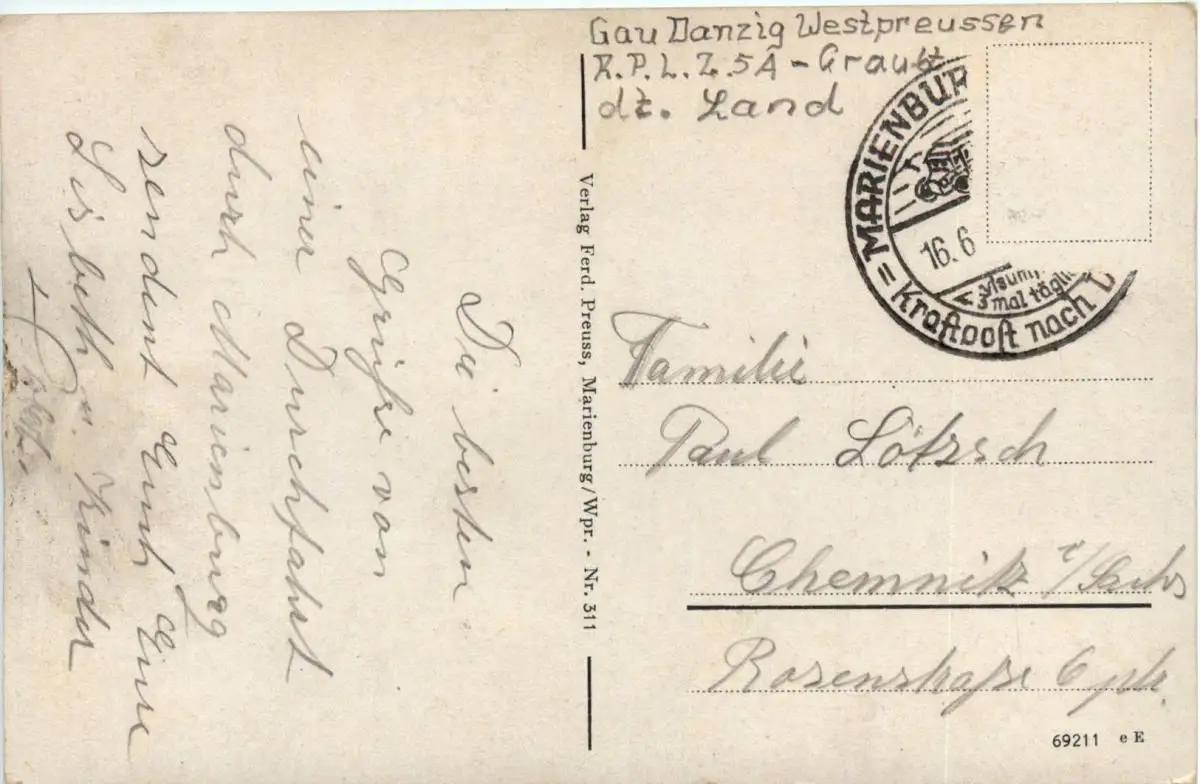 Gau Danzig Westpreussen
R.P.L.Z. 5A - Graud
dz. Land
= MARIENBUR
16.6
3 mal tägli
Kraftpost nach
Die besten
Grüße von
einer Durchfahrt
durch Marienburg
sendent Euch Eure
Lisbeth u. Kinder
Verlag Ferd. Preuss, Marienburg/Wpr. - Nr. 311
Familie
Paul Lötzsch
Chemnitz i/Sachs
Rosenstraße 6 ptr.
69211 e E